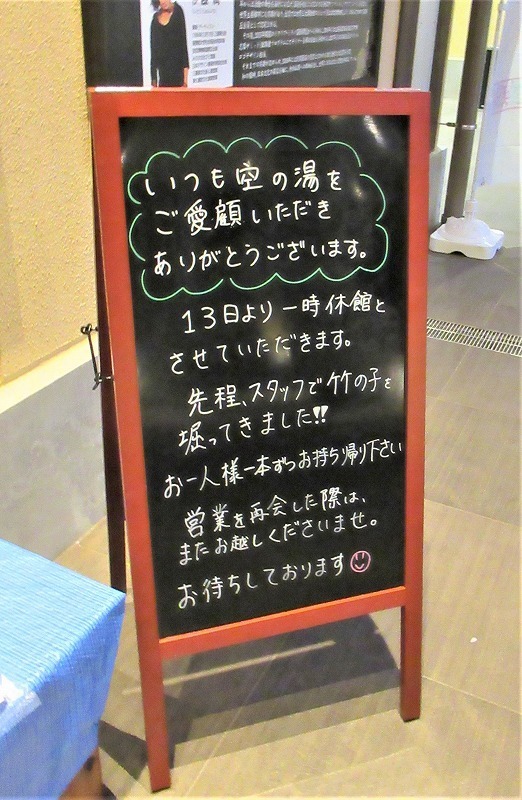 いつも空の湯を
ご愛顧いただき
ありがとうございます。
13日より一時休館と
させていただきます。
先程、スタッフで竹の子を
堀ってきました!!
お一人様一本ずつお持ち帰り下さい
営業を再会した際は、
またお越しくださいませ。
お待ちしております